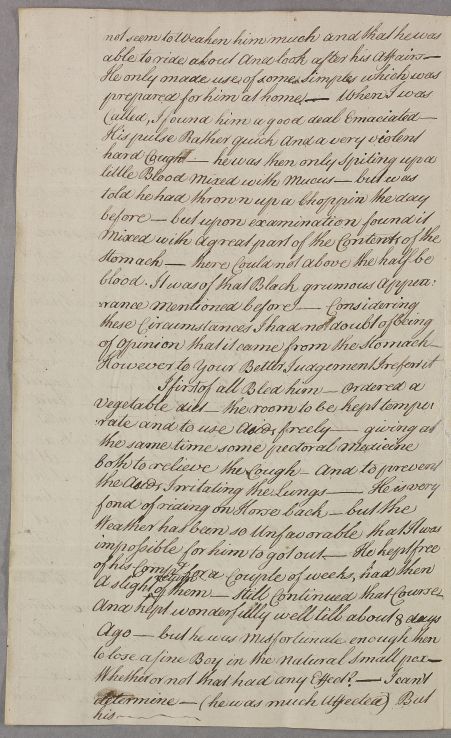 not seem to Weaken him much and that he was
able to ride about And look after his Affairs —
He only made use of some Simples which was
prepared for him at home. — When I was
Called, I found him a good deal Emaciated —
His pulse Rather quick And a very violent
hard Cough — he was then only Spiting up a
little Blood Mixed with Mucus — but was
told he had thrown up a Choppin the day
before — but upon examination found it
Mixed with a great part of the Contents of the
Stomach — there Could not above the half be
blood. It was of that Black grumous Appea:
:rance Mentioned before — Considering
these Circumstances I had no doubt of being
of opinion that it came from the Stomach —
However to Your Better Judgement I refer it
I first of all Bled him — Ordered a
Vegetable diet — the room to be kept tempe:
rate and to use Acids freely — giving at
the same time some pectoral Medicine
both to relieve the Cough — And to prevent
the Acids Irritating the Lungs — He is very
fond of riding on Horse back — but the
Weather has been so Unfavorable that It was
impossible for him to got out. — He kept free
of his Compt. for a Couple of weeks, had then
A slight return of them — Still Continued that Course
And kept wonderfully well till about 8 days
Ago — but he was Misfortunate enough then
to lose a fine Boy in the natural Small pox —
Whether or not that had any Effect? — I can't
determine — (he was much Affected) But
his